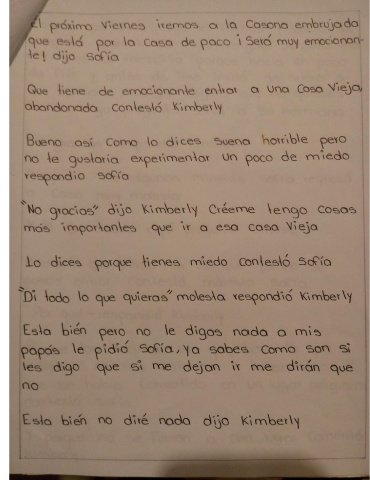 El próximo Viernes iremos a la Casona embrujada
que está por la casa de paco ¡ Será muy emocionan-
te! dijo Sofía
Que tiene de emocionante entrar a una Casa Vieja,
abandonada contestó Kimberly
Bueno así como lo dices suena horrible pero
no te gustaria experimentar un poco de miedo
respondio sofía
"No gracias" dijo Kimberly Créeme tengo cosas
mas importantes que ir a esa casa Vieja
Lo dices porque tienes miedo contestó Sofía
"Di todo lo que quieras" molesta respondió Kimberly
Esta bién pero no le digas nada a mis
papás le pidió Sofía, ya sabes como son si
les digo que si me dejan ir me dirán que
no
Esta bién no diré nada dijo Kimberly